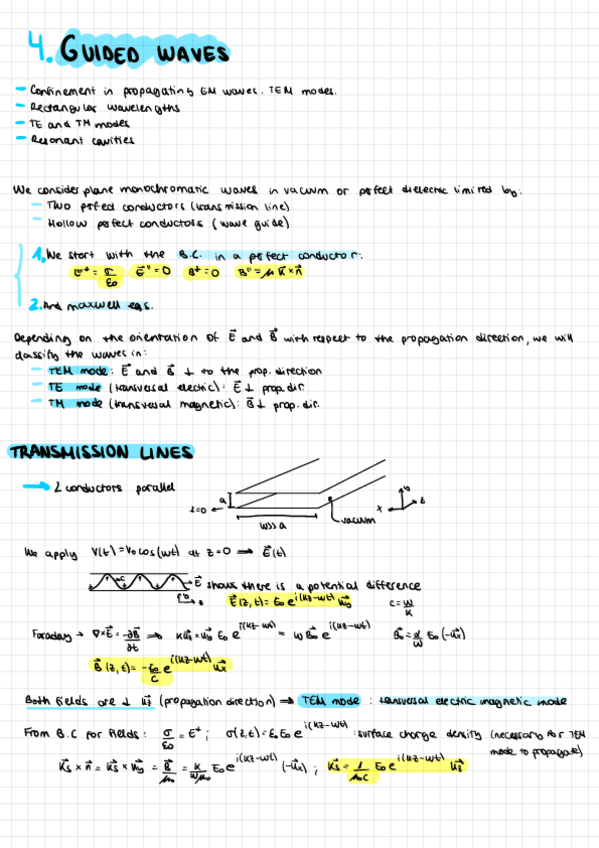 4. GUIDED WAVES
- Confinement in propagating EM waves. TEM modes.
- Rectangular wavelengths
- TE and TM modes
- Resonant cavities
We consider plane monochromatic waves in vacuum or perfect dielectric limited by:
- Two perfect conductors (transmission line)
- Hollow perfect conductors (wave guide)
1. We start with the B.C. in a perfect conductor:
E⊥ = σ/ε₀ E⃗" = 0 B⊥ = 0 B" = μ K⃗ × n⃗
2. And maxwell eqs.
Depending on the orientation of E⃗ and B⃗ with respect to the propagation direction, we will
classify the waves in:
- TEM mode: E⃗ and B⃗ ⊥ to the prop. direction
- TE mode (transversal electric): E⃗ ⊥ prop. dir.
- TM mode (transversal magnetic): B⃗ ⊥ prop. dir.
TRANSMISSION LINES
→ 2 conductors parallel
a z=0 w>>a vacuum x y z
We apply V(t) = V₀ cos(wt) at z=0 ⟹ E⃗(t)
E⃗ shows there is a potential difference
E⃗(z,t) = E₀ e^i(kz-wt) u⃗y c = w/k
Faraday → ∇×E⃗ = -∂B⃗/∂t ⟹ k u⃗z × u⃗y E₀ e^i(kz-wt) = w B⃗₀ e^i(kz-wt) B⃗₀ = k/w E₀ (-u⃗x)
B⃗(z,t) = -E₀/c e^i(kz-wt) u⃗x
Both fields are ⊥ u⃗z (propagation direction) ⟹ TEM mode : transversal electric magnetic mode
From B.C for fields: σ/ε₀ = E⊥; σ(z,t) = ε₀ E₀ e^i(kz-wt) : surface charge density (necessary for TEM
mode to propagate)
K⃗s × n⃗ = K⃗s × u⃗y = B⃗/μ₀ = k/wμ₀ E₀ e^i(kz-wt) (-u⃗x) ; K⃗s = 1/μ₀c E₀ e^i(kz-wt) u⃗z